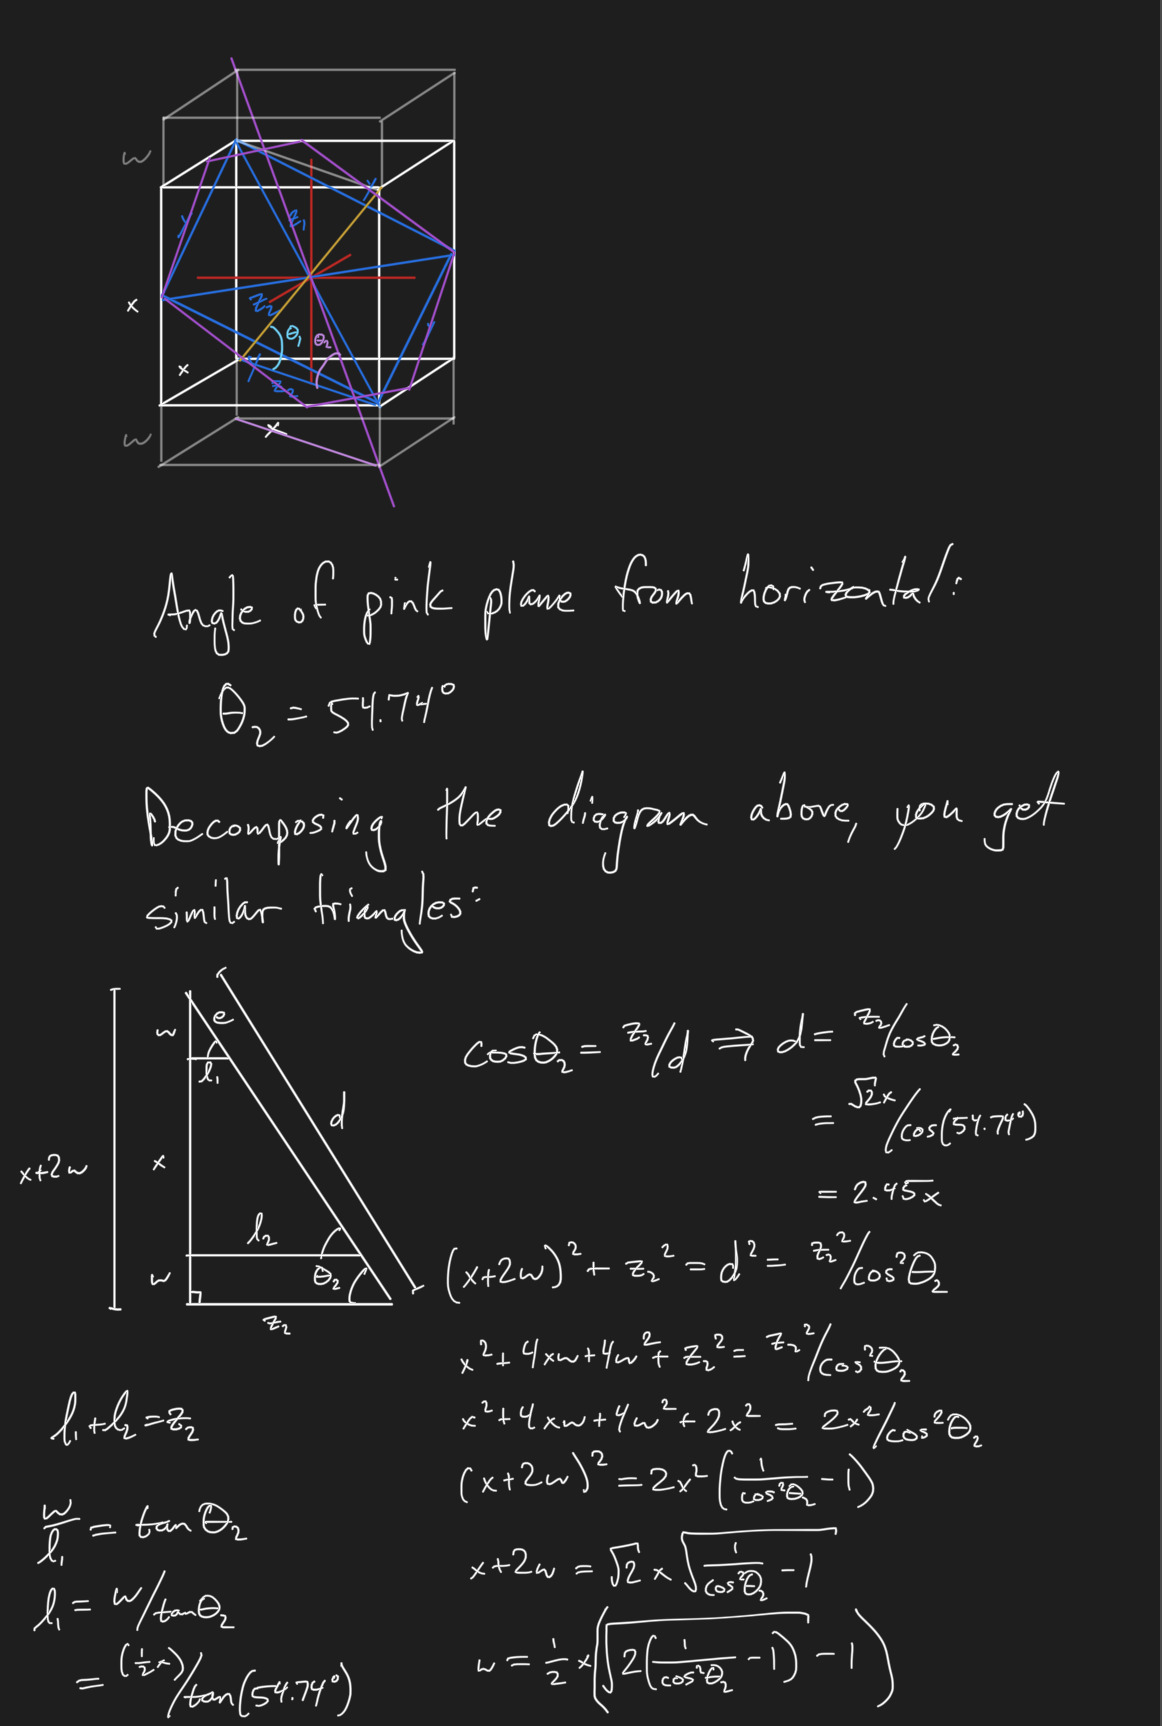 w
y
y
z₁
x
z₂
θ₁
θ₂
y
x
y
z₂
w
x
Angle of pink plane from horizontal:
θ₂ = 54.74°
Decomposing the diagram above, you get
similar triangles:
w
e
l₁
d
x+2w
x
l₂
w
θ₂
z₂
cosθ₂ = z₂/d ⇒ d = z₂/cosθ₂
= √2x/cos(54.74°)
= 2.45x
(x+2w)² + z₂² = d² = z₂²/cos²θ₂
x² + 4xw + 4w² + z₂² = z₂²/cos²θ₂
x² + 4xw + 4w² + 2x² = 2x²/cos²θ₂
(x+2w)² = 2x²(1/cos²θ₂ - 1)
x+2w = √2 x √(1/cos²θ₂ - 1)
w = 1/2 x(√(2(1/cos²θ₂ - 1)) - 1)
l₁+l₂=z₂
w/l₁ = tanθ₂
l₁ = w/tanθ₂
= (1/2x)/tan(54.74°)